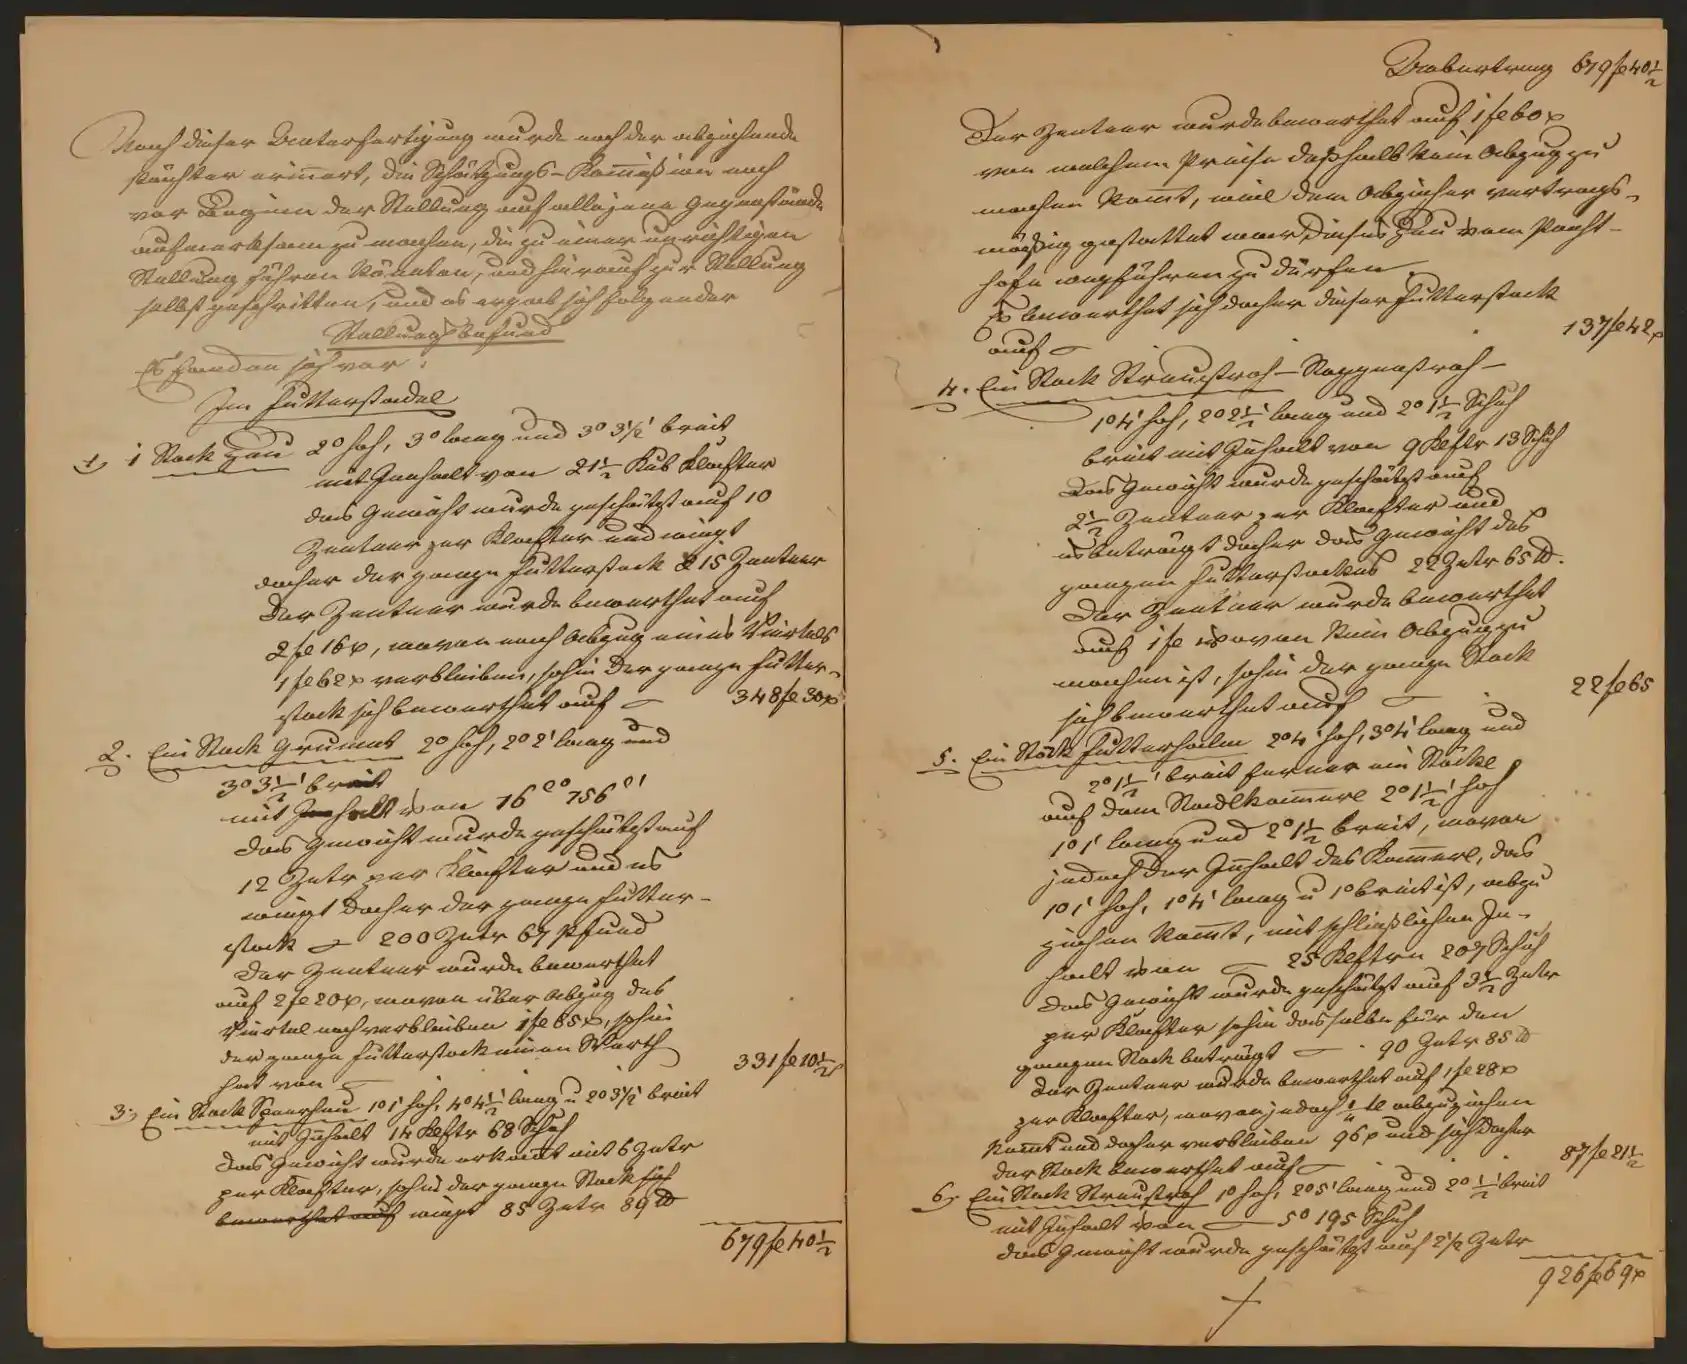 Nach dieser Unterfertigung wurde noch der abziehende
Pächter erinnert, die Schätzungs-Kommission noch
vor Beginn der Stellung auf alle jene Gegenstände
aufmerksam zu machen, die zu einer unrichtigen
Stellung führen könnten, und hierauf zur Stellung
selbst geschritten, und es ergab sich folgender
Stellungsbefund
Es fanden sich vor:
Im Futterstadel
1, 1 Stock Heu 2° hoh, 3° lang und 3° 3½' breit
mit Innhalt von 21½ Kub Klafter
das Gewicht wurde geschätzt auf 10
Zentner per Klafter und wiegt
daher der ganze Futterstock 215 Zentner
Der Zentner wurde bewerthet auf
2 fl 16 x, wovon nach Abzug eines Viertels
1 fl 62 x verbleiben, sohin der ganze Futter-
stock sich bewerthet auf – 348 fl 30 x
2. Ein Stock Grumet 2° hoh, 2° 2' lang und
3° 3½' breit
mit Inhalt von 16°°° 156'''
Das Gewicht wurde geschätzt auf
12 Zntr per Klafter und es
wiegt daher der ganze Futter-
stock – 200 Zntr 67 Pfund
Der Zentner wurde bewerthet
auf 2 fl 20 x, wovon über Abzug des
Viertel noch verbleiben 1 fl 65 x, sohin
der ganze Futterstock einen Werth
hat von – 331 fl 10½
3, Ein Stock Sauerheu 1° 1' hoh, 4° 4½' lang u 2° 3½' breit
mit Inhalt 14 Klftr 68 Schuh
Das Gewicht wurde erkannt mit 6 Zntr
per Klafter, sohin der ganze Stock sich
bewerthet auf wiegt 85 Zntr 89 ℔
679 fl 40½
Uebertrag 679 fl 40½
Der Zentner wurde bewerthet auf 1 fl 60 x
von welchem Preise deßhalb kein Abzug zu
machen kommt, weil dem Abzieher vertrags-
mäßig gestattet war dieses Heu vom Pacht-
hofe wegführen zu dürfen
Es bewerthet sich daher dieser Futterstock
auf – 137 fl 42 x
4. Ein Stock Streustroh – Roggenstroh –
1° 4' hoh, 2° 2½' lang und 2° 1½ Schuh
breit mit Inhalt von 9 Klftr 13 Schuh
Das Gewicht wurde geschätzt auf
2½ Zentner per Klafter und
es beträgt daher das Gewicht des
ganzen Futterstockes 22 Zntr 65 ℔.
Der Zentner wurde bewerthet
auf 1 fl wovon kein Abzug zu
machen ist, sohin der ganze Stock
sich bewerthet auf – 22 fl 65
5. Ein Stock Futterhalm 2° 4' hoh, 3° 4' lang und
2° 1½' breit ferner ein Stöckl
auf dem Stadlkammerl 2° 1½' hoh
1° 1' lang und 2° 1½ breit, wovon
jedoch der Inhalt des Kammerl, das
1° 1' hoh, 1° 4' lang u 1° breit ist, abzu
ziehen kommt, mit schließlichen In-
halt von – 25 Klftrn 207 Schuh
Das Gewicht wurde geschätzt auf 3½ Zntr
per Klafter sohin dasselbe für den
ganzen Stock beträgt – 90 Zntr 85 ℔
Der Zentner wurde bewerthet auf 1 fl 28 x
per Klafter, wovon jedoch ¼ tl abzuziehen
kommt und daher verbleiben 96 x und sich daher
der Stock bewerthet auf – 87 fl 21½
6, Ein Stock Streustroh 1° hoh, 2° 5' lang und 2° 1½ breit
mit Inhalt von – 5° 195 Schuh
das Gewicht wurde geschätzt auf 2½ Zntr
926 fl 69 x